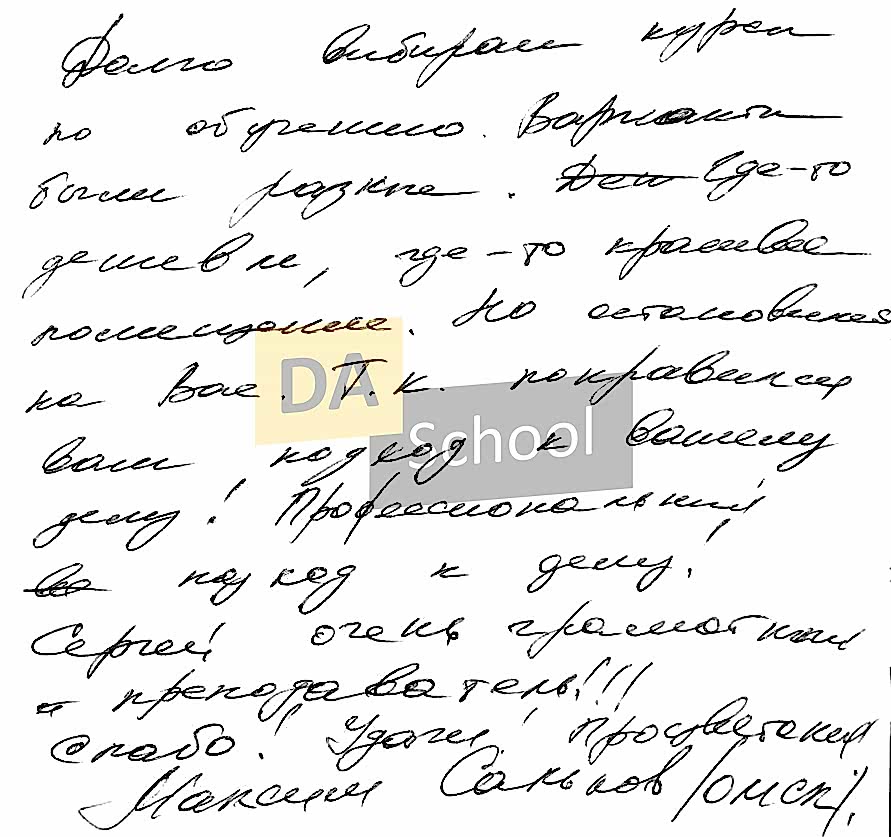 Долго выбирал курсы
по обучению. Варианты
были разные. Деш Где-то
дешевле, где-то красивее
помещение. Но остановился
на Вас. Т.к. понравился
ваш подход к вашему
делу! Профессиональный
ва подход к делу!
Сергей очень грамотный
- преподаватель!!!
Спасибо! Удачи! Процветания
Максим Саньков /омск/.
DA
School